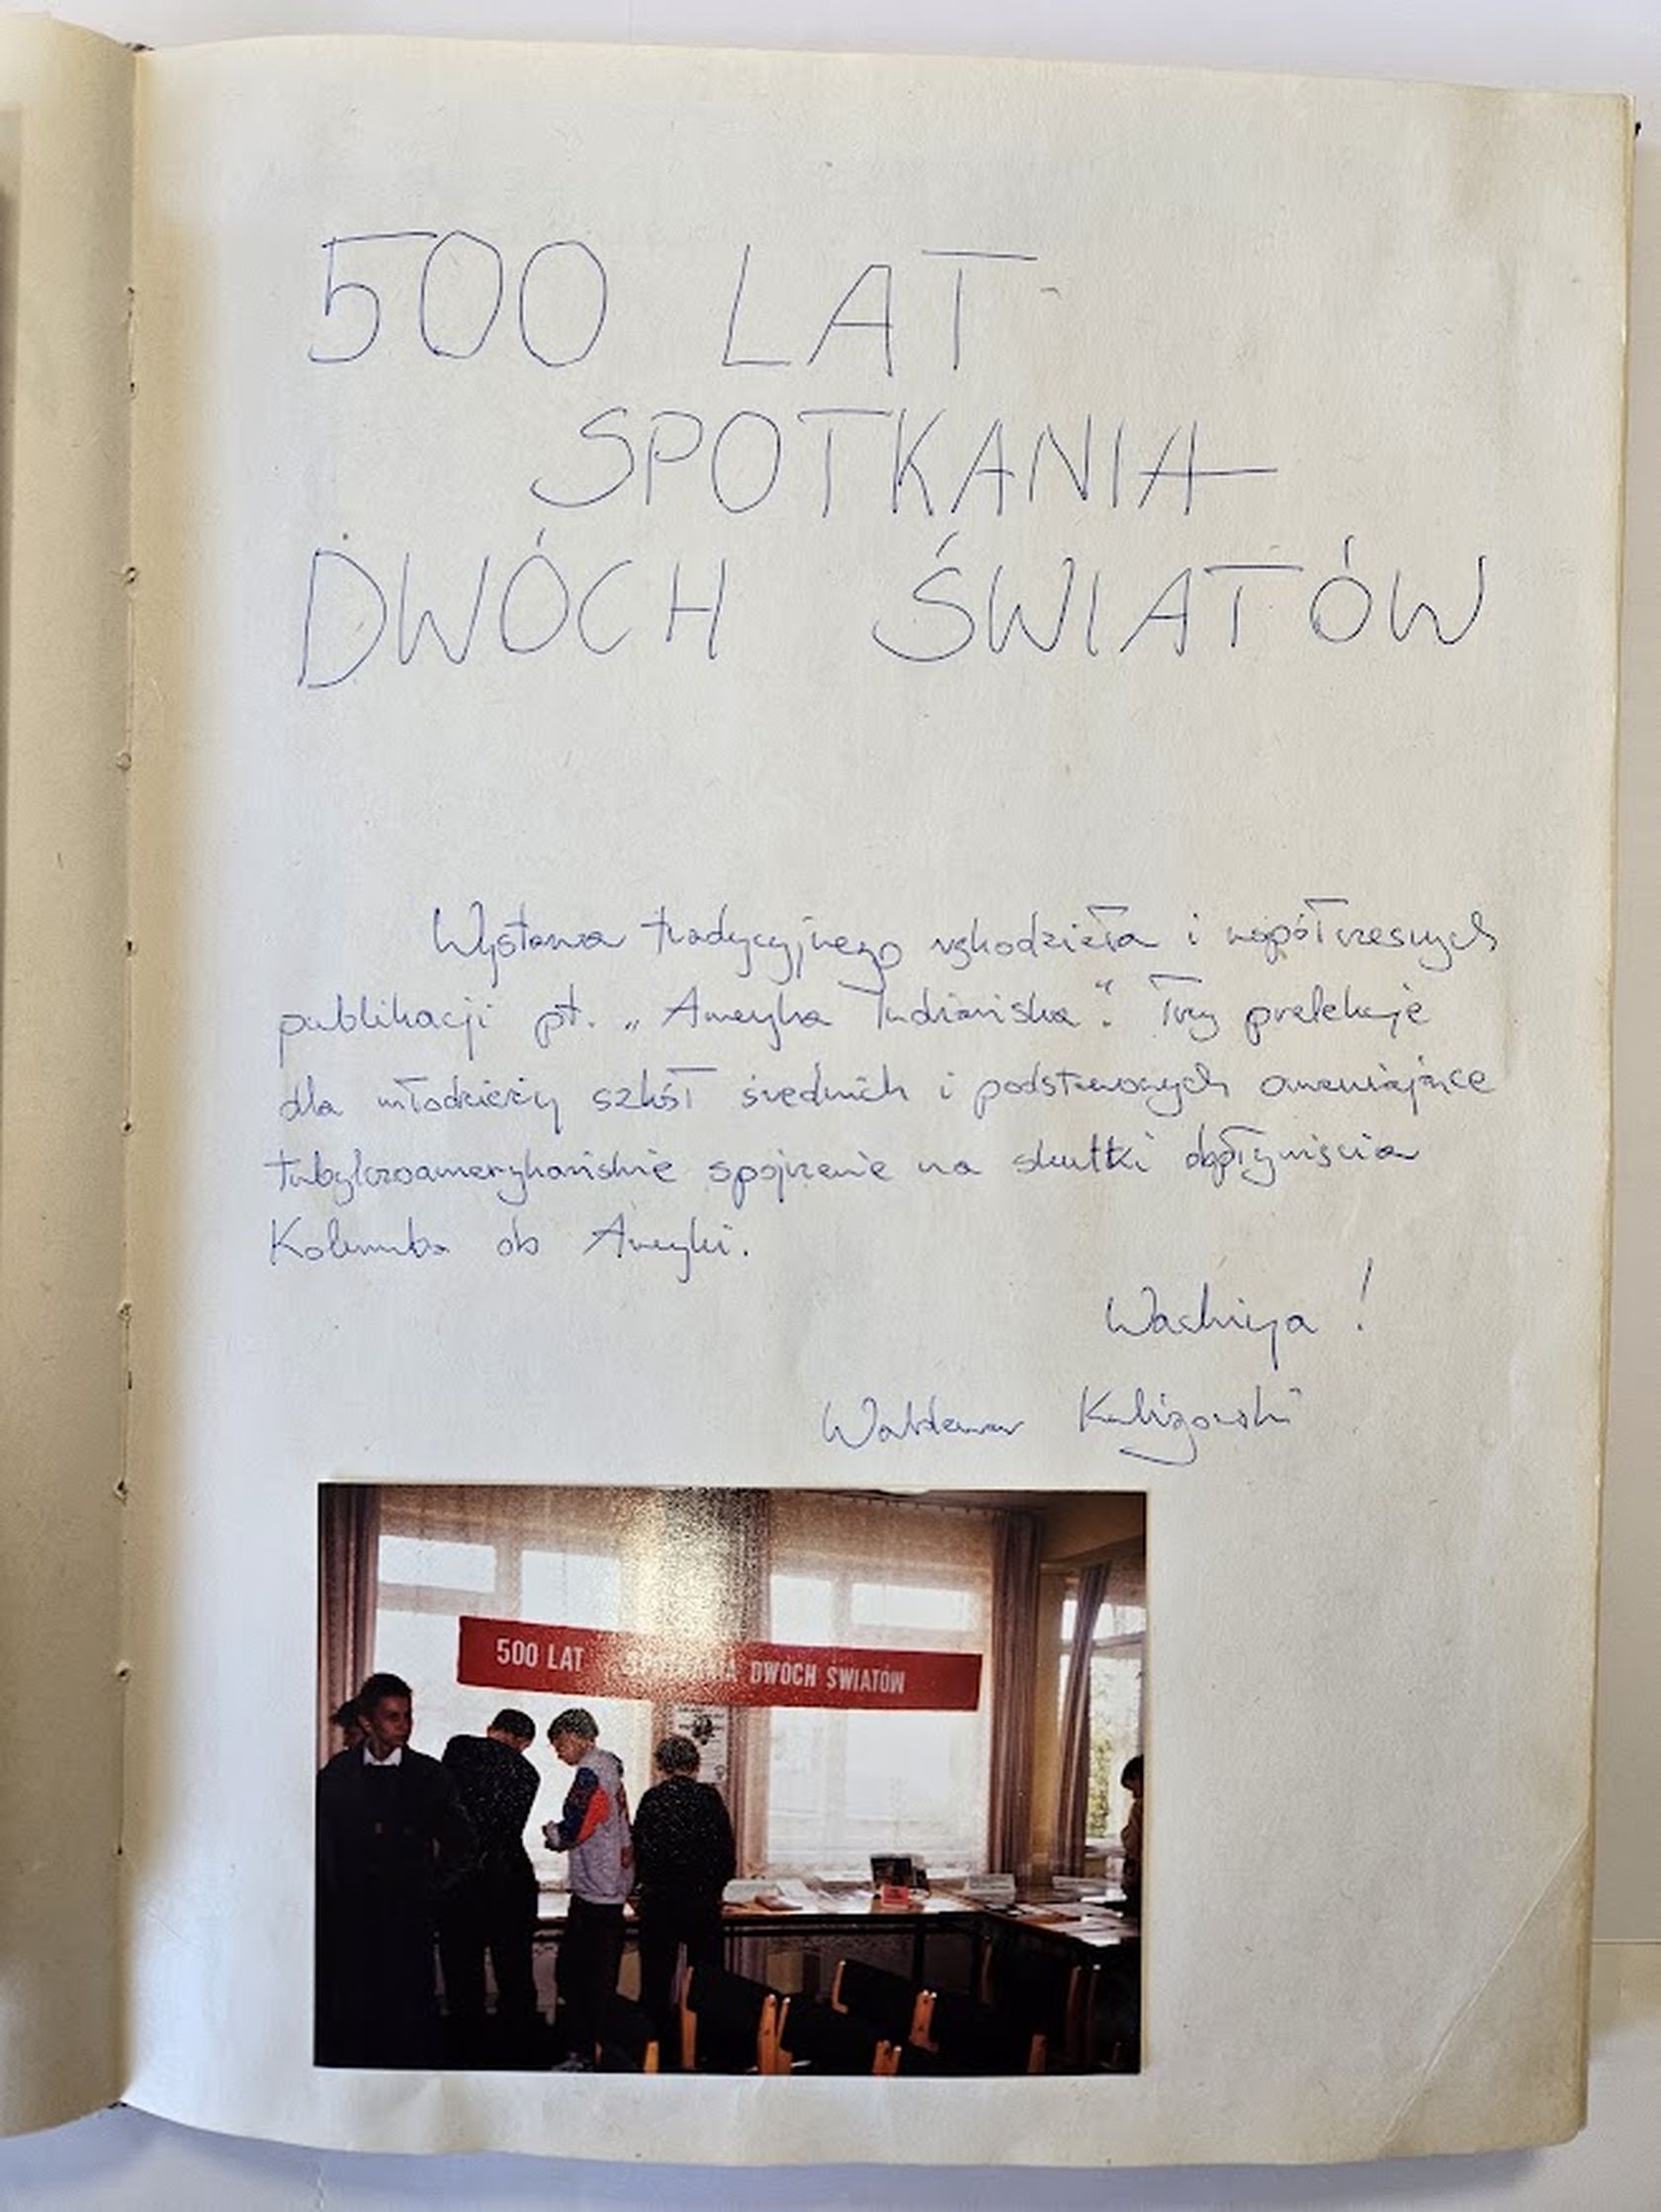 500 LAT
SPOTKANIA
DWÓCH ŚWIATÓW
Wystawa tradycyjnego rękodzieła i współczesnych
publikacji pt. „Ameryka Indiańska". Trzy prelekcje
dla młodzieży szkół średnich i podstawowych omawiające
tubylczoamerykańskie spojrzenie na skutki dopłynięcia
Kolumba do Ameryki.
Wachiya!
Waldemar Kuligowski
500 LAT SPOTKANIA DWOCH ŚWIATÓW